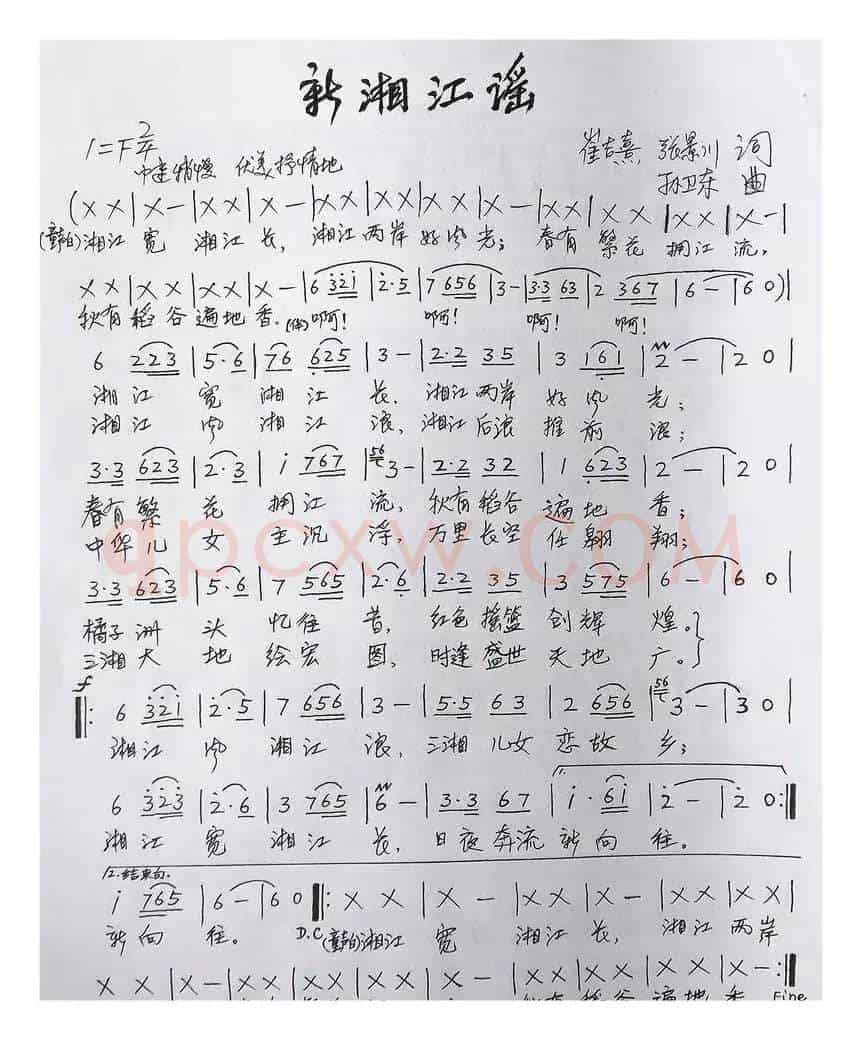 新湘江谣
1=F 2/4
中速稍慢 优美抒情地
崔吉熹、张景川 词
孙卫东 曲
(X X | X - | X X | X - | X X | X X | X X | X - | X X | X X | X X | X - |
(童白)湘江 宽 湘江 长, 湘江 两岸 好风 光; 春有 繁花 拥江 流,
X X | X X | X X | X - | 6 321 | 2·5 | 7 656 | 3 - | 3·3 63 | 2 367 | 6 - | 6 0) |
秋有 稻谷 遍地 香. 啊! 啊! 啊! 啊!
6 223 | 5·6 | 76 625 | 3 - | 2·2 35 | 3 161 | 2 - | 2 0 |
湘江 宽 湘江 长, 湘江两岸 好风 光;
湘江 风 湘江 浪, 湘江后浪 推前 浪;
3·3 623 | 2·3 | i 767 | 56 3 - | 2·2 32 | 1 623 | 2 - | 2 0 |
春有繁 花 拥江 流, 秋有稻谷 遍地 香;
中华儿 女 主沉 浮, 万里长空 任翱 翔;
gpcxw.COM
3·3 623 | 5·6 | 7 565 | 2·6 | 2·2 35 | 3 575 | 6 - | 6 0 |
橘子洲 头 忆往 昔, 红色摇篮 创辉 煌。
三湘大 地 绘宏 图, 时逢盛世 天地 广。
f
‖: 6 321 | 2·5 | 7 656 | 3 - | 5·5 63 | 2 656 | 56 3 - | 3 0 |
湘江 风 湘江 浪, 三湘儿女 恋故 乡;
6 323 | 2·6 | 3 765 | 6 - | 3·3 67 | i·6i | 2 - | 2 0 :‖
湘江 宽 湘江 长, 日夜奔流 新向 往。
12.结束句.
i 765 | 6 - | 6 0 ‖: X X | X - | X X | X - | X X | X X |
新向 往。 D.C (童白)湘江 宽 湘江 长, 湘江 两岸
X X | X - | X X | X X | X X | X - | X X | X X | X X | X - :‖
遍地 香 Fine